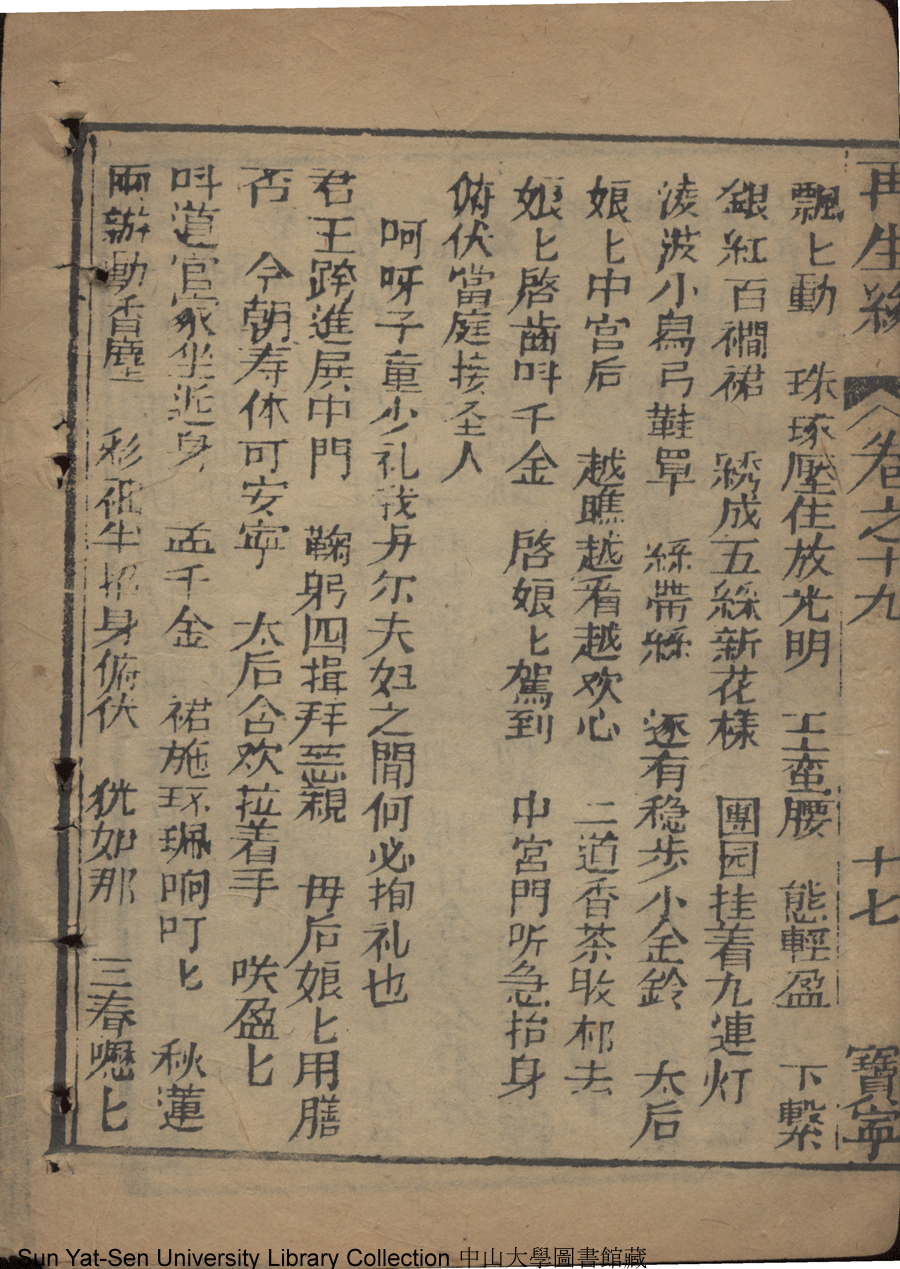 再生緣 卷之十九 十七 寶寧
飄匕動 珠琢壓住放光明 工蛮腰 態輕盈 下繫
銀紅百襇裙 綉成五綵新花樣 團园挂着九連灯
淩波小舄弓鞋罩 綵帶綵 逐有稳步小金鈴 太后
娘匕中宫后 越瞧越看越欢心 二道香茶收杯去
娘匕啓齒呌千金 啓娘匕駕到 中宮門听急抬身
俯伏當庭接圣人
呵呀子童少礼我与尔夫妇之間何必拘礼也
君王跨進展中門 鞠躬四揖拜慈親 毋后娘匕用膳
否 今朝寿体可安寧 太后含欢拉着手 咲盈匕
呌道官家坐近身 孟千金 裙施环珮响叮匕 秋蓮
兩辦動香塵 彩袖 身俯伏 犹如那 三春嚦匕
Sun Yat-Sen University Library Collection 中山大學圖書館藏